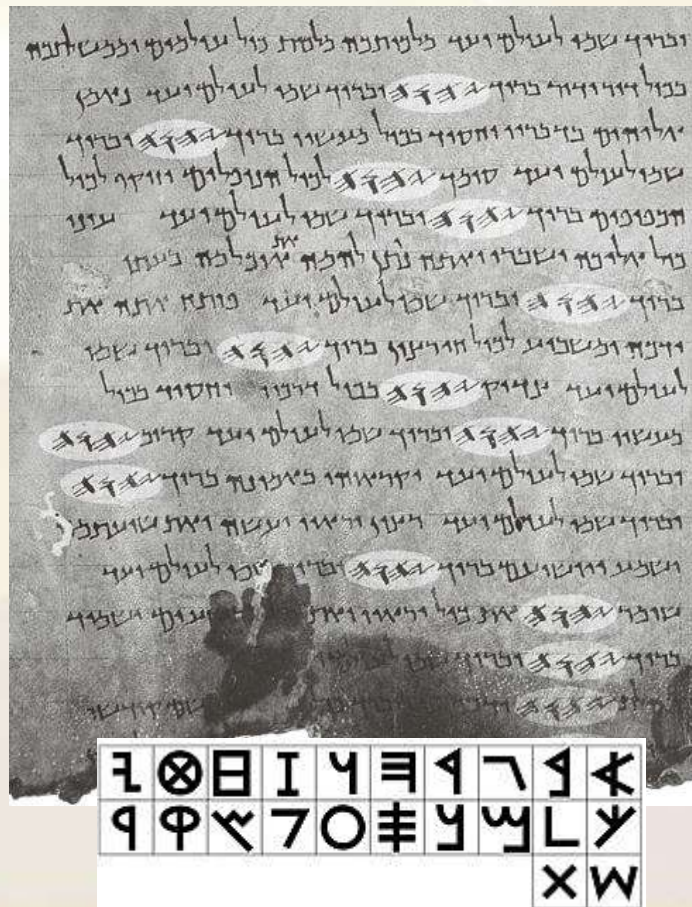 וברוך שמו לעולם ועד מלכותכה מלכות כול עולמים וממשלתכה
בכול דור ודור ברוך 𐤉𐤄𐤅𐤄 וברוך שמו לעולם ועד נאמן
אלוהים בדבריו וחסיד בכול מעשיו ברוך 𐤉𐤄𐤅𐤄 וברוך
שמו לעולם ועד סומך 𐤉𐤄𐤅𐤄 לכול הנופלים וזוקף לכול
הכפופים ברוך 𐤉𐤄𐤅𐤄 וברוך שמו לעולם ועד עיני
כול אליכה ישברו ואתה נותן להמה את אוכלמה בעתו
ברוך 𐤉𐤄𐤅𐤄 וברוך שמו לעולם ועד פותח אתה את
ידכה ומשביע לכול חי רצון ברוך 𐤉𐤄𐤅𐤄 וברוך שמו
לעולם ועד צדיק 𐤉𐤄𐤅𐤄 בכול דרכיו וחסיד בכול
מעשיו ברוך 𐤉𐤄𐤅𐤄 וברוך שמו לעולם ועד קרוב 𐤉𐤄𐤅𐤄
וברוך שמו לעולם ועד יקראוהו באמונה ברוך 𐤉𐤄𐤅𐤄
וברוך שמו לעולם ועד רצון יראיו יעשה ואת שועתמה
ישמע ויושיעם ברוך 𐤉𐤄𐤅𐤄 וברוך שמו לעולם ועד
שומר 𐤉𐤄𐤅𐤄 את כול יראיו ואת ישמיד
ברוך 𐤉𐤄𐤅𐤄 וברוך שמו
𐤉𐤄𐤅𐤄
𐤀 𐤁 𐤂 𐤃 𐤄 𐤅 𐤆 𐤇 𐤈 𐤉
𐤊 𐤋 𐤌 𐤍 𐤎 𐤏 𐤐 𐤑 𐤒 𐤓
𐤔 𐤕